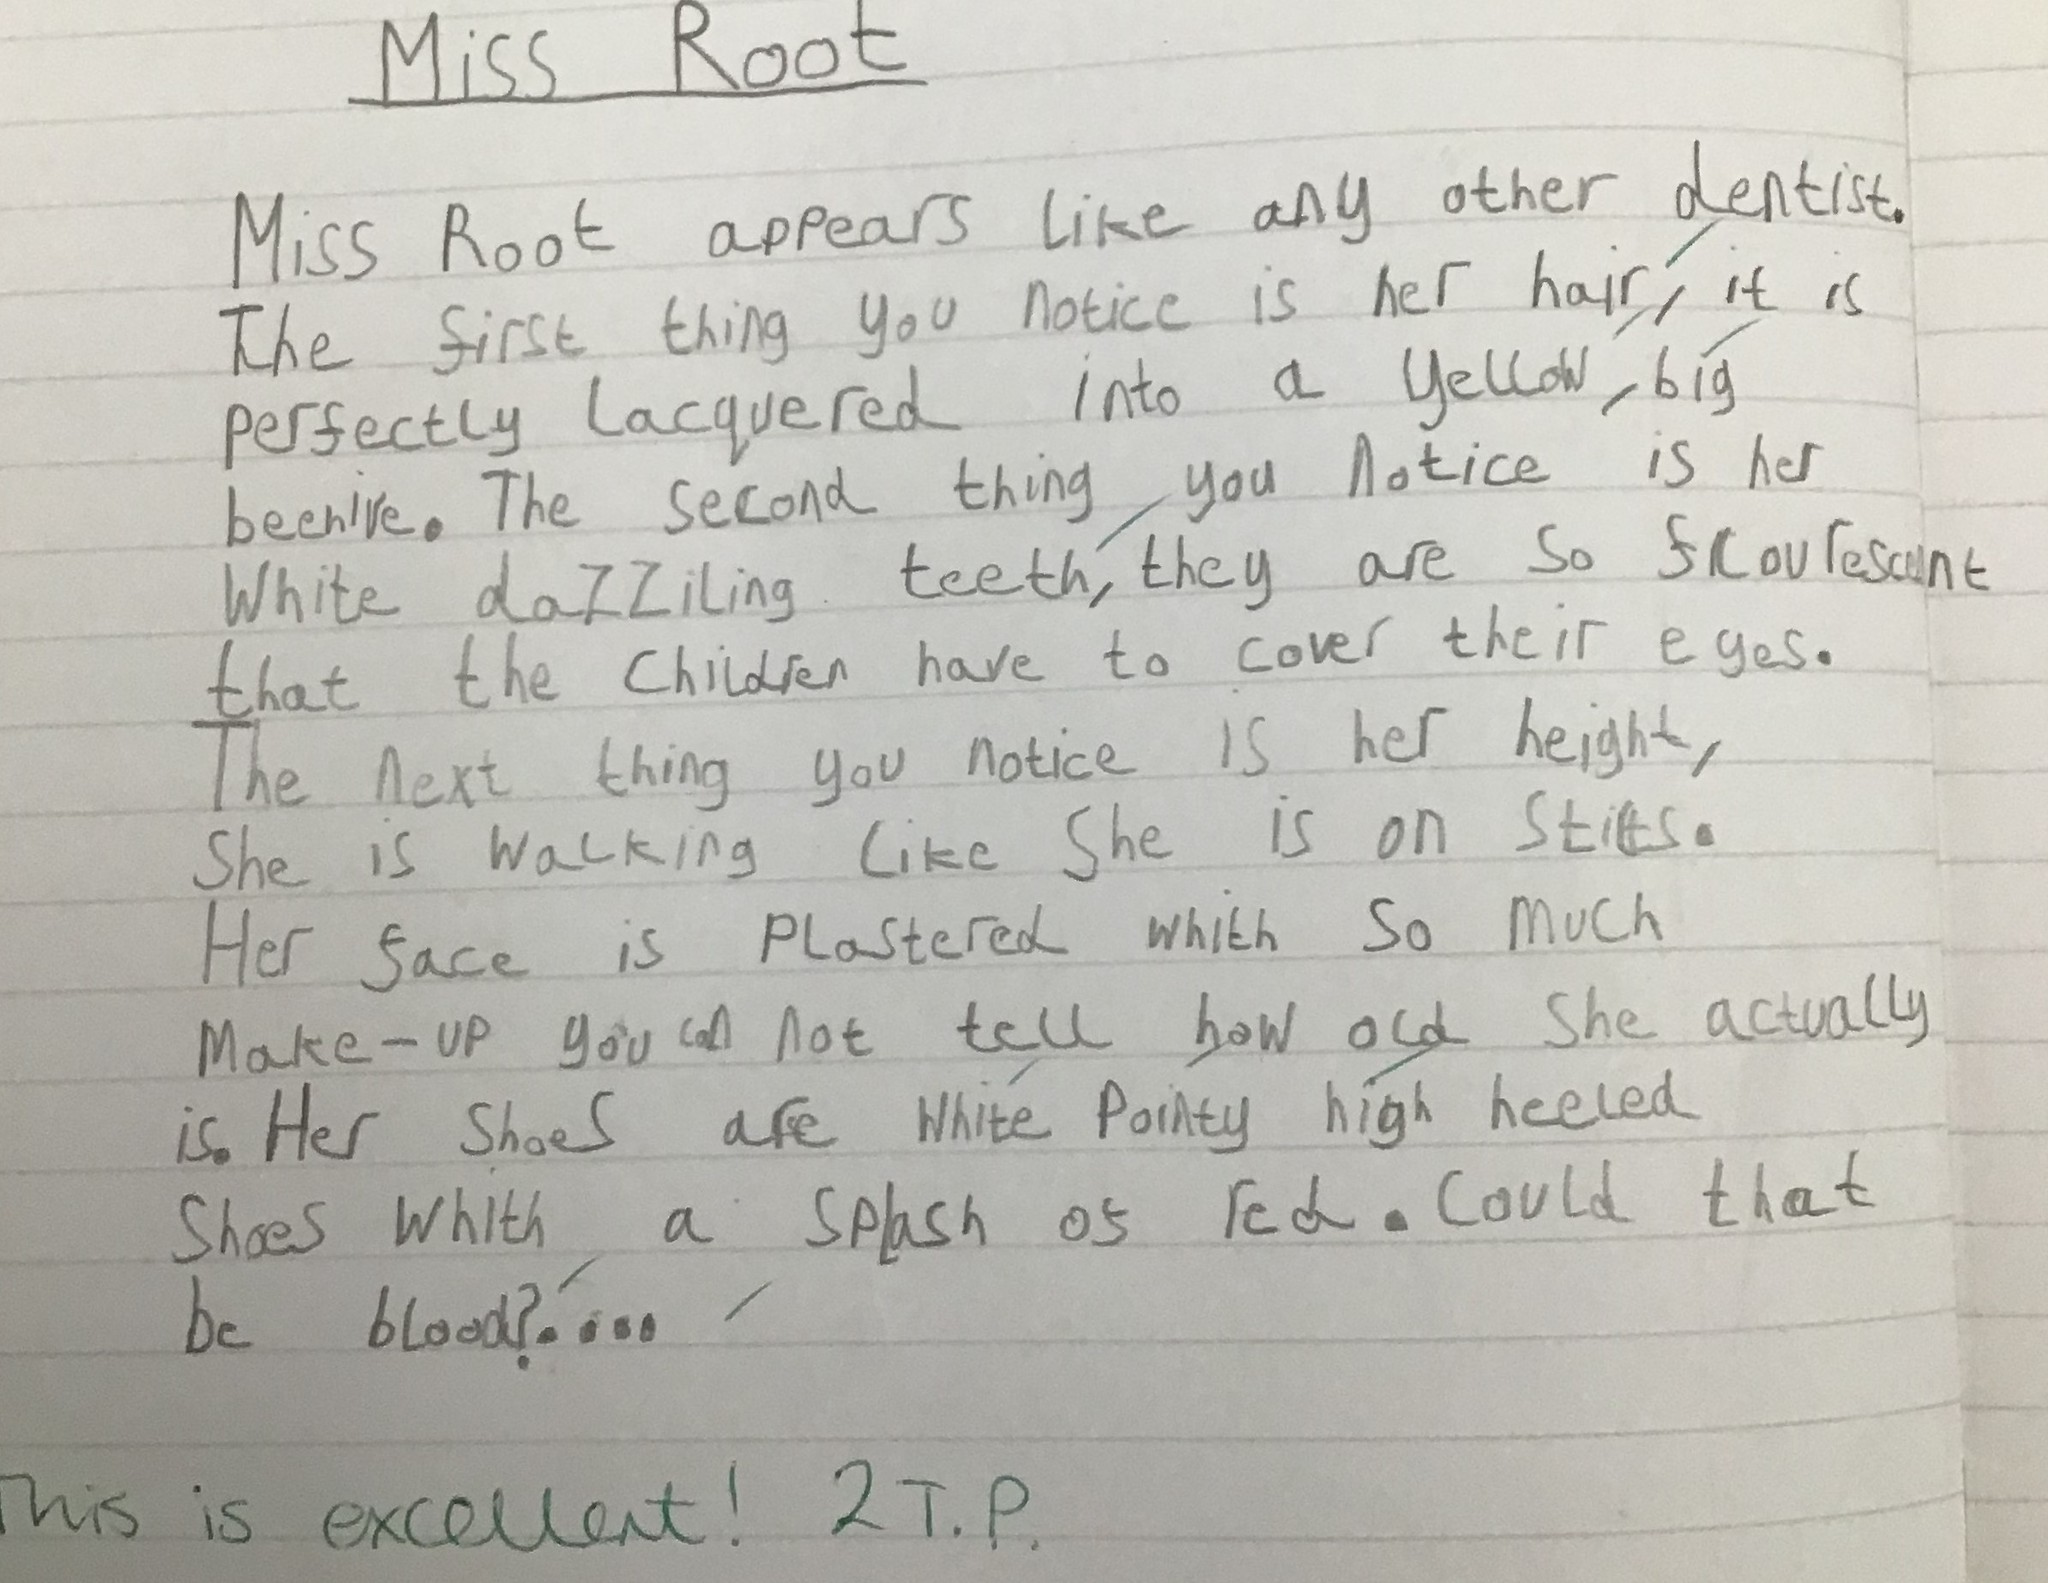 Miss Root
Miss Root appears like any other dentist.
The first thing you notice is her hair, it is
perfectly lacquered into a yellow, big
beehive. The second thing you notice is her
White dazziling teeth, they are so flourescent
that the children have to cover their eyes.
The next thing you notice is her height,
She is walking like She is on Stilts.
Her face is plastered whith so much
Make-up you can not tell how old She actually
is. Her shoes are white pointy high heeled
Shoes whith a splash of red. Could that
be blood?....
This is excellent! 2 T.P.